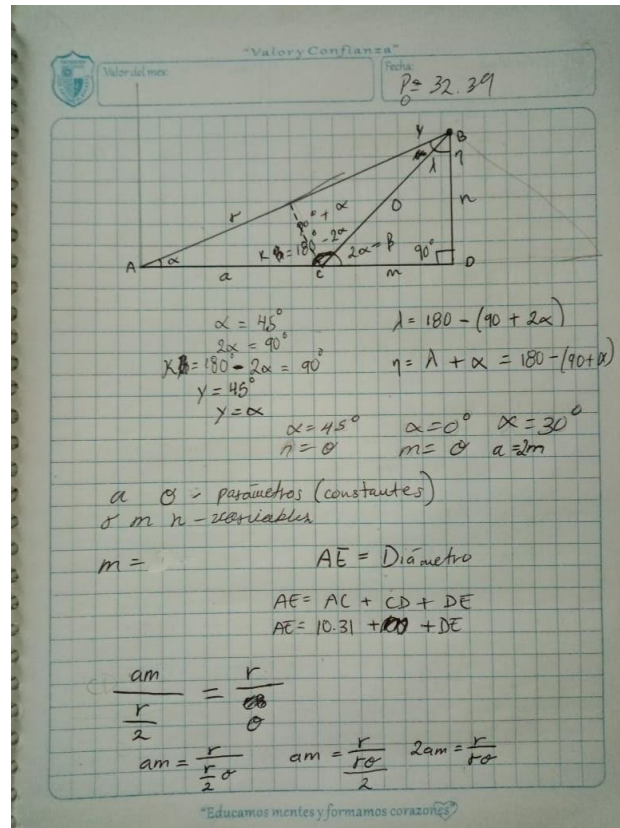 "Valor y Confianza"
Valor del mes:
Fecha:
P= 32.39
0
γ B
λ η
r
90° + α
O n
K = 180° - 2α
2α = β
90°
A α
a C m D
α = 45° λ = 180 - (90 + 2α)
2α = 90°
K = 180° - 2α = 90° η = λ + α = 180 - (90+α)
γ = 45°
γ = α
α = 45° α = 0° α = 30°
n = O m = O a = 2m
a O - parámetros (constantes)
r m n - variables
m = AE = Diámetro
AE = AC + CD + DE
AE = 10.31 + + DE
am / (r/2) = r / O
am = r / (r/2 O) am = r / (rO/2) 2am = r / rO
"Educamos mentes y formamos corazones"